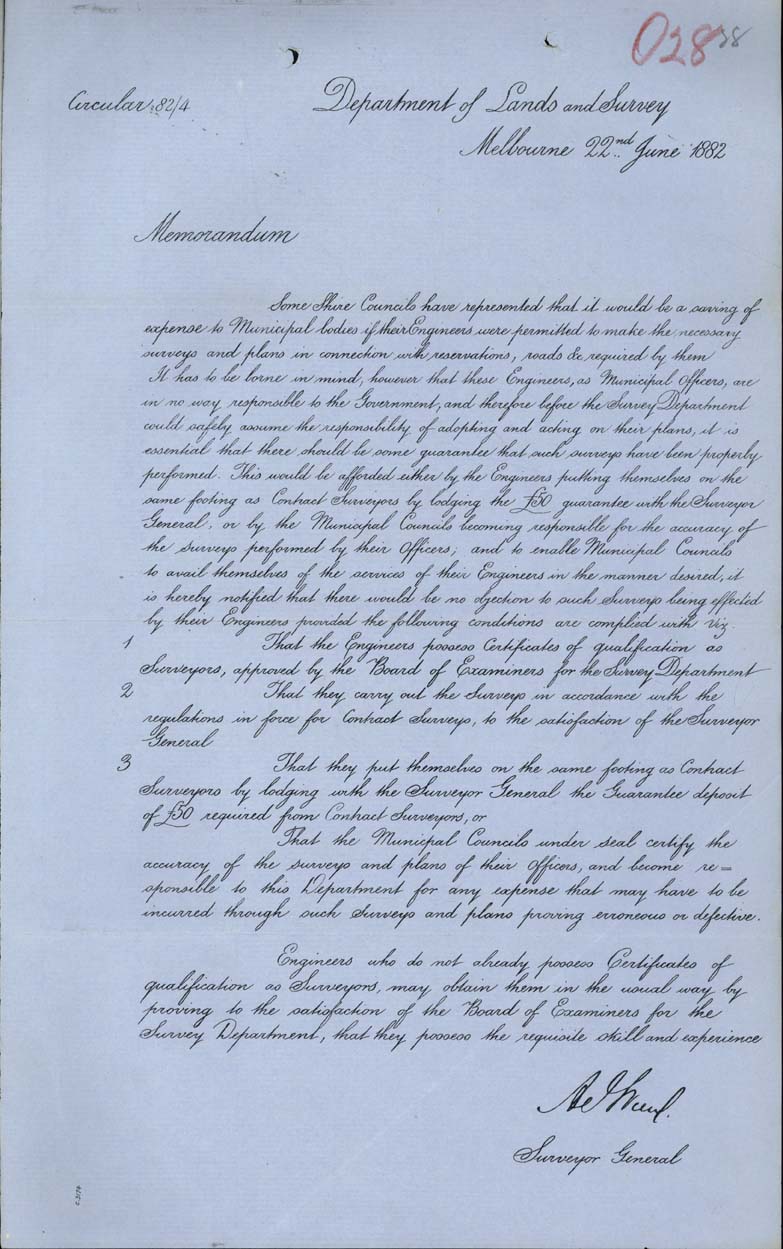 028 38
Circular 82/4
Department of Lands and Survey
Melbourne 22nd June 1882
Memorandum
Some Shire Councils have represented that it would be a saving of
expense to Municipal bodies if their Engineers were permitted to make the necessary
surveys and plans in connection with reservations, roads &c required by them
It has to be borne in mind, however that these Engineers, as Municipal Officers, are
in no way responsible to the Government, and therefore before the Survey Department
could safely assume the responsibility of adopting and acting on their plans, it is
essential that there should be some guarantee that such surveys have been properly
performed. This would be afforded either by the Engineers putting themselves on the
same footing as Contract Surveyors by lodging the £50 guarantee with the Surveyor
General, or by the Municipal Councils becoming responsible for the accuracy of
the surveys performed by their Officers; and to enable Municipal Councils
to avail themselves of the services of their Engineers in the manner desired, it
is hereby notified that there would be no objection to such Surveys being effected
by their Engineers provided the following conditions are complied with viz.
1 That the Engineers possess Certificates of qualification as
Surveyors, approved by the Board of Examiners for the Survey Department
2 That they carry out the Surveys in accordance with the
regulations in force for Contract Surveys, to the satisfaction of the Surveyor
General
3 That they put themselves on the same footing as Contract
Surveyors by lodging with the Surveyor General the Guarantee deposit
of £50 required from Contract Surveyors, or
That the Municipal Councils under seal certify the
accuracy of the surveys and plans of their Officers, and become re=
sponsible to this Department for any expense that may have to be
incurred through such Surveys and plans proving erroneous or defective.
Engineers who do not already possess Certificates of
qualification as Surveyors, may obtain them in the usual way by
proving to the satisfaction of the Board of Examiners for the
Survey Department, that they possess the requisite skill and experience
Surveyor General